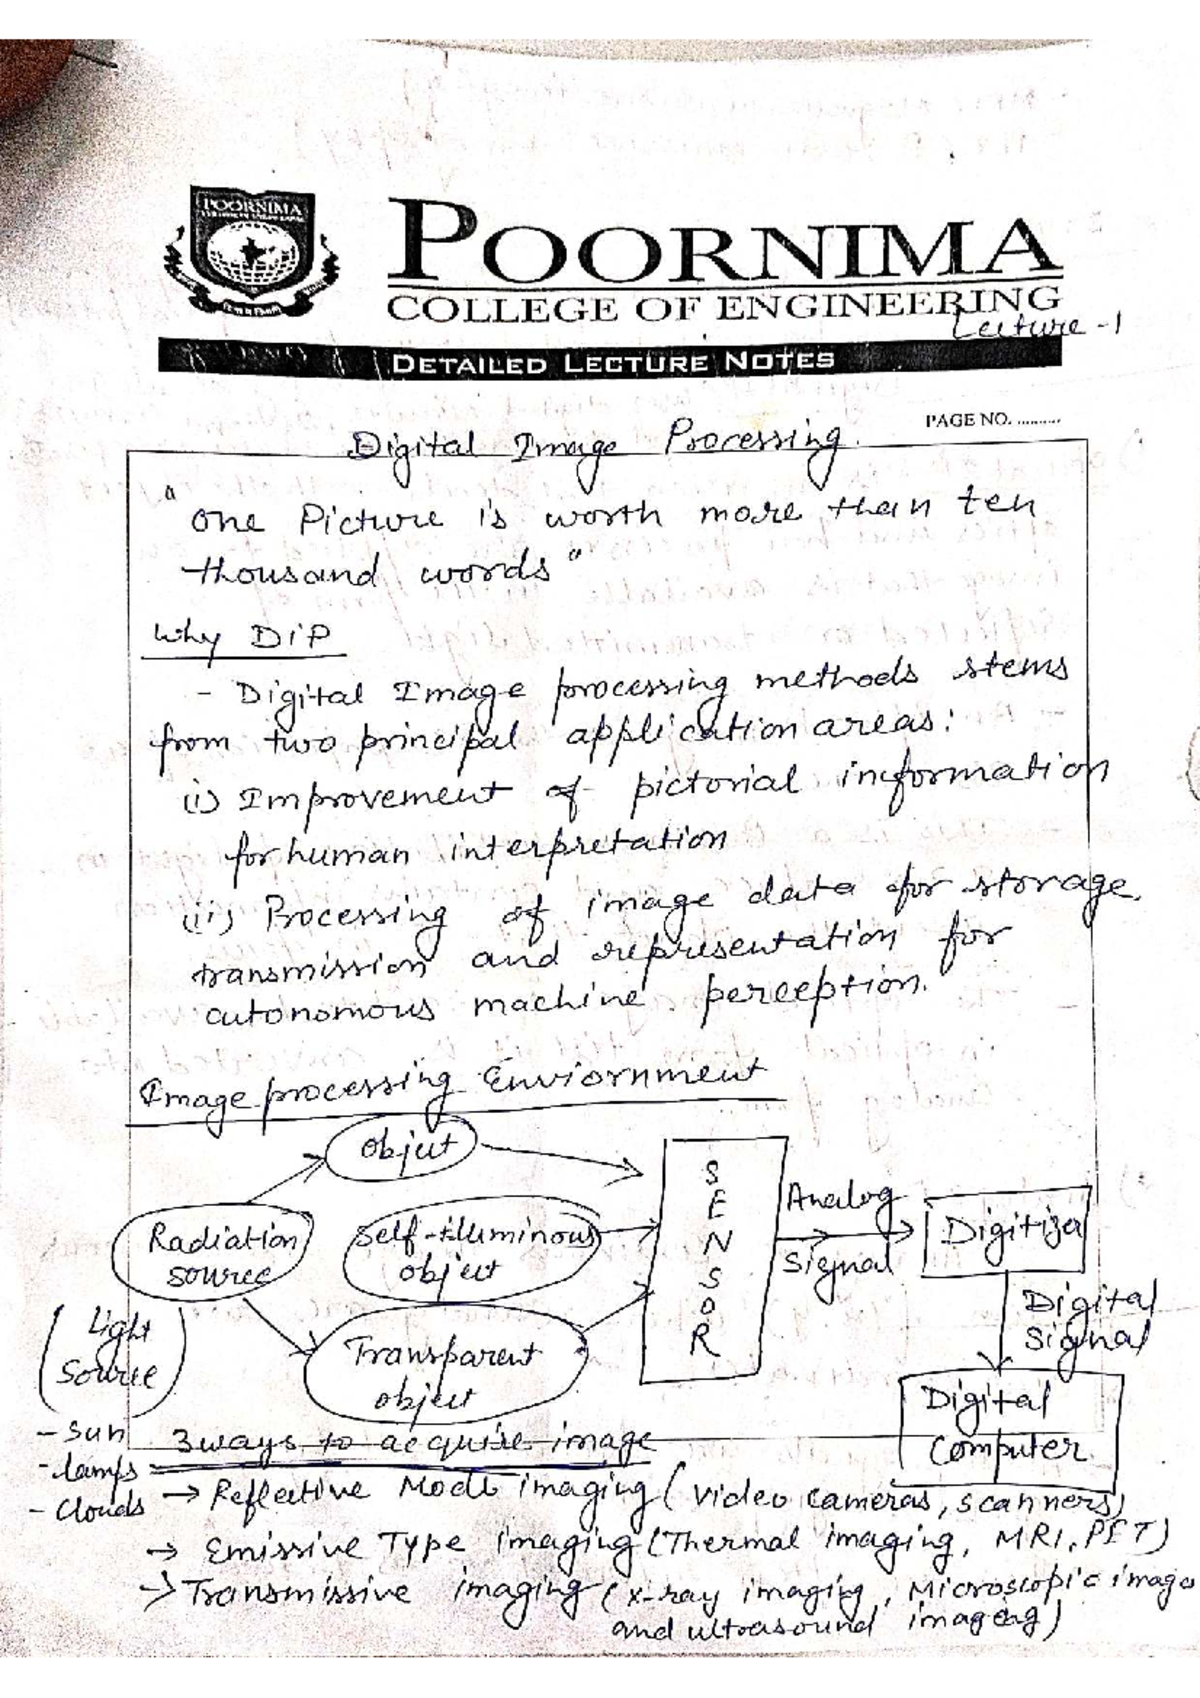 POORNIMA
POORNIMA
COLLEGE OF ENGINEERING
Lecture - 1
DETAILED LECTURE NOTES
PAGE NO. ..........
Digital Image Processing.
"One Picture is worth more than ten
thousand words"
Why DiP
- Digital Image processing methods stems
from two principal application areas:
(i) Improvement of pictorial information
for human interpretation
(ii) Processing of image data for storage,
transmission and representation for
autonomous machine perception.
Image processing Enviornment
Object
Radiation
source
Self-illuminous
object
Transparent
object
SENSOR
Analog
Signal
Digitizer
Digital
Signal
Digital
Computer
(Light
Source)
- Sun
- lamps
- Clouds
3 ways to acquire image
→ Reflective Mode imaging (Video cameras, scanners)
→ Emissive Type imaging (Thermal imaging, MRI, PET)
→ Transmissive imaging (X-ray imaging, Microscopic image
and ultrasound imaging)